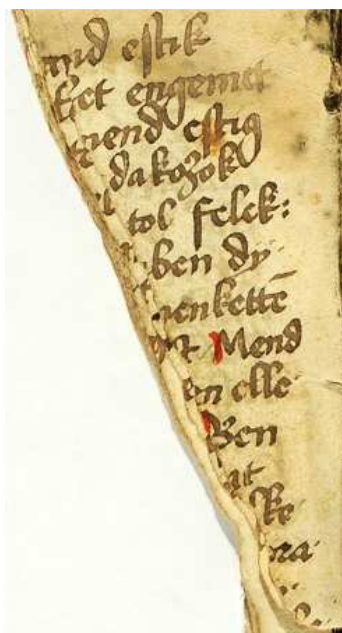 mind estik
ket engemet
mend estig
dakozok
tol felek:
ben dy
nenkettē
Mend
en elle
Ben
at
Re
na